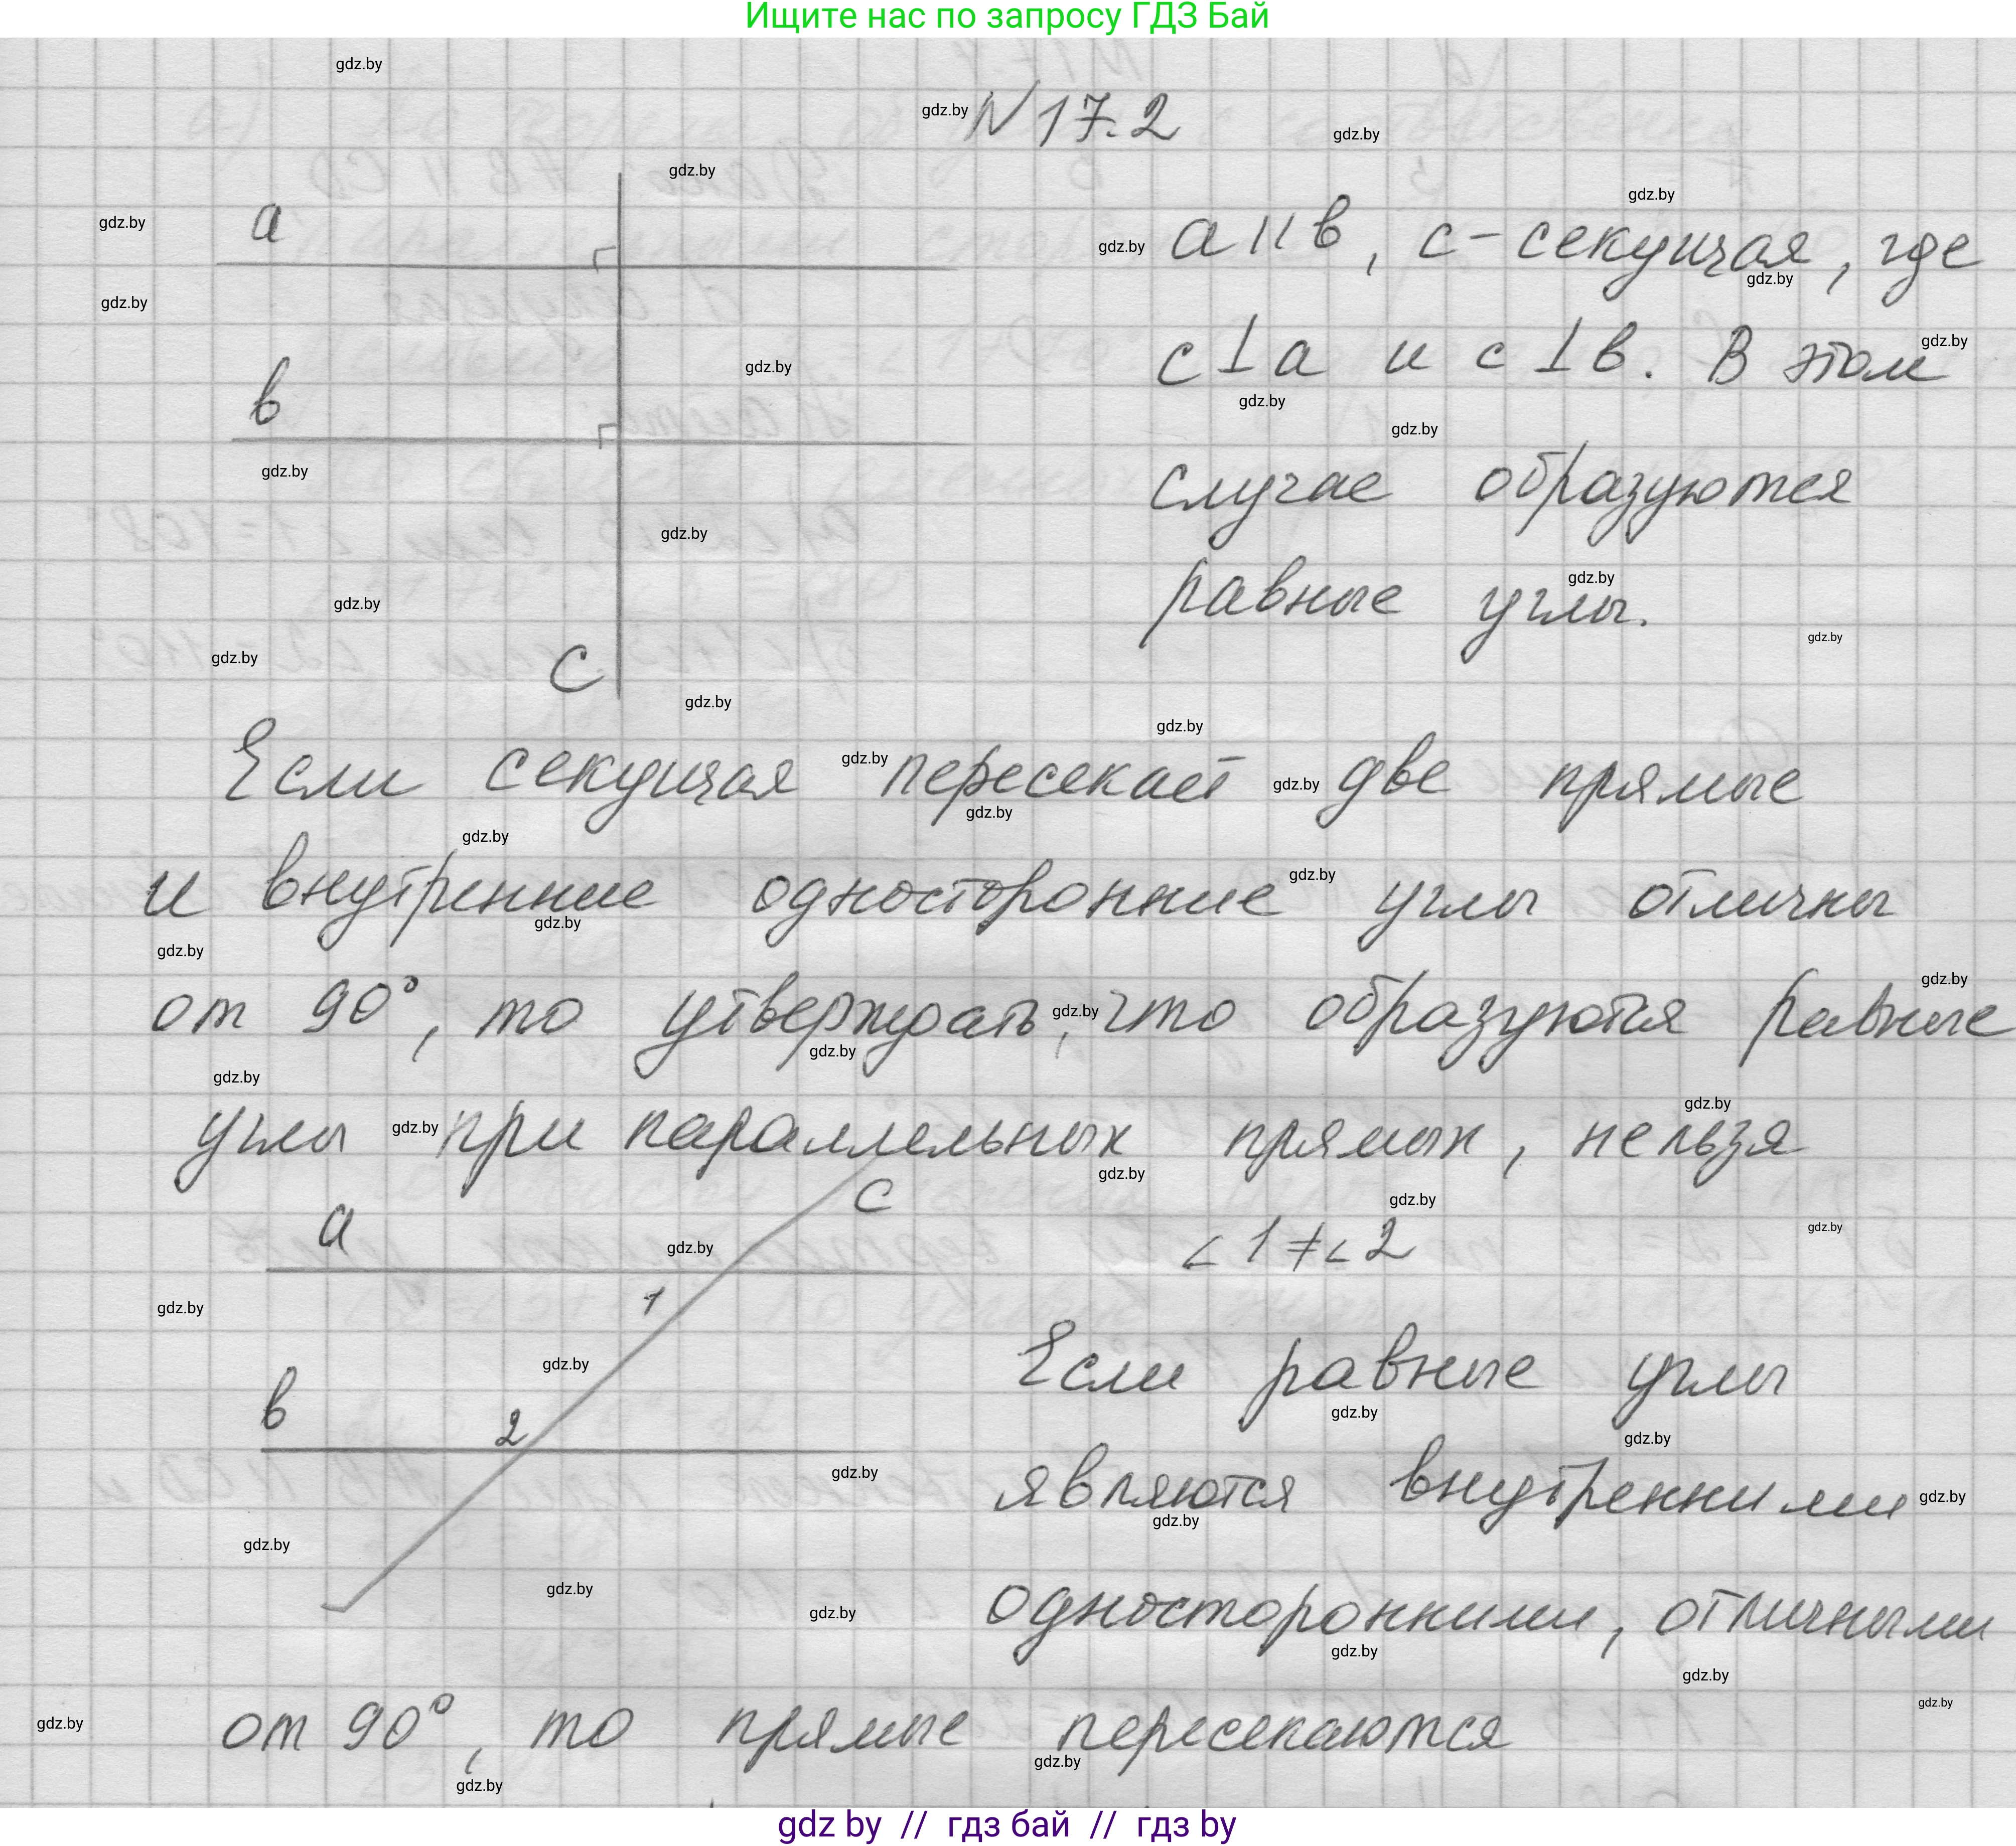 Ищите нас по запросу ГДЗ Бай
N 17.2
a
a II в, c - секущая, где
в
c ⊥ a и c ⊥ в. В этом
случае образуются
равные углы.
C
Если секущая пересекает две прямые
и внутренние односторонние углы отличны
от 90°, то утверждать, что образуются равные
углы при параллельных прямых, нельзя
a
C
∠1 ≠ ∠2
1
Если равные углы
в
2
являются внутренними
односторонними, отличными
от 90°, то прямые пересекаются
gdz by // гдз бай // гдз by